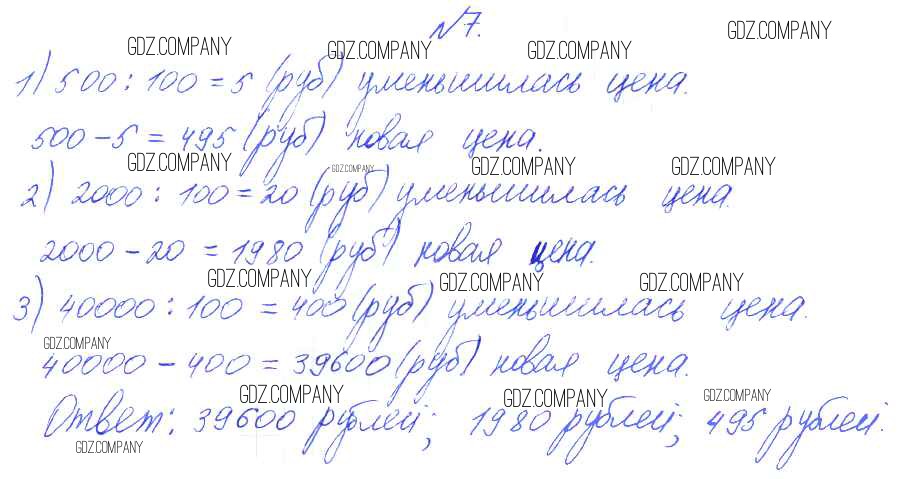 №7.
GDZ.COMPANY GDZ.COMPANY GDZ.COMPANY GDZ.COMPANY
1) 500 : 100 = 5 (руб) уменьшилась цена.
500 - 5 = 495 (руб) новая цена.
GDZ.COMPANY GDZ.COMPANY GDZ.COMPANY GDZ.COMPANY
2) 2000 : 100 = 20 (руб) уменьшилась цена.
2000 - 20 = 1980 (руб) новая цена.
GDZ.COMPANY GDZ.COMPANY GDZ.COMPANY
3) 40000 : 100 = 400 (руб) уменьшилась цена.
GDZ.COMPANY
40000 - 400 = 39600 (руб) новая цена.
GDZ.COMPANY GDZ.COMPANY GDZ.COMPANY
Ответ: 39600 рублей; 1980 рублей; 495 рублей.
GDZ.COMPANY